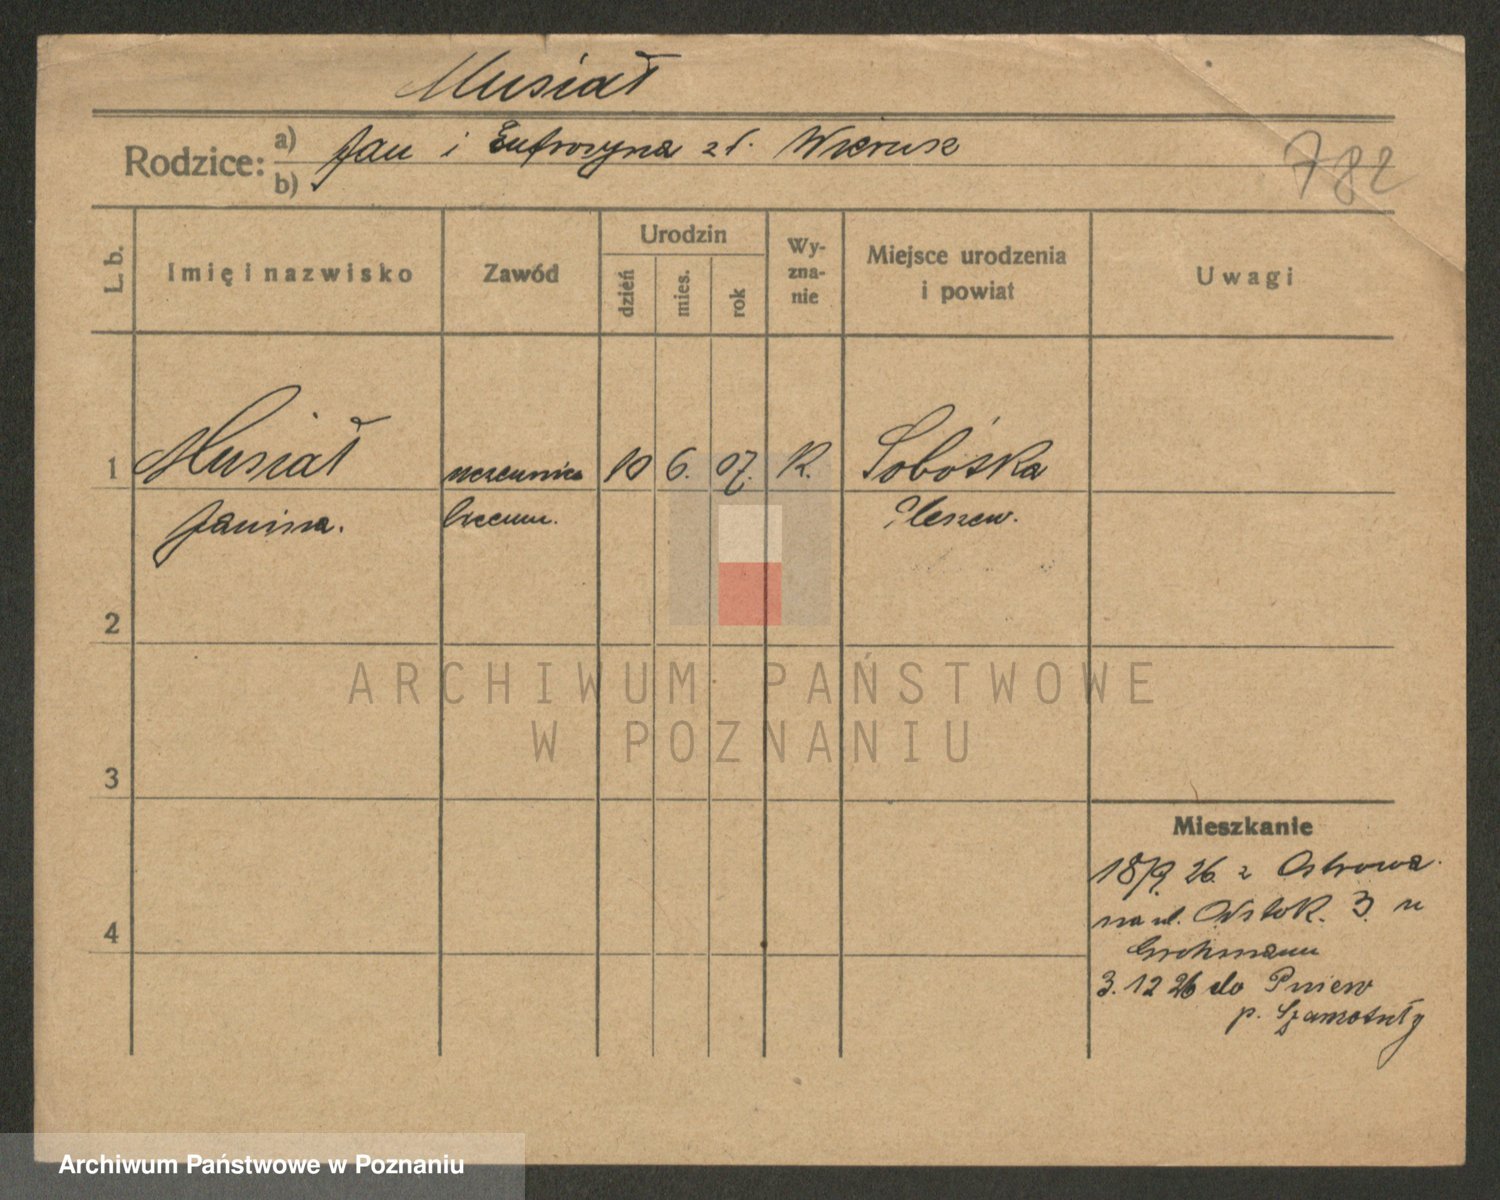 Musiał
Rodzice: a) Jan i Eufrozyna zd. Wierusz
b)
782
L. b. Imię i nazwisko Zawód Urodzin dzień mies. rok Wy-zna-nie Miejsce urodzenia i powiat Uwagi
1 Musiał uczennica 10 6. 07. R. Sobótka
Janina. liceum. Pleszew.
2
3
4
Mieszkanie
18/9 26. z Ostrowa
na ul. 3 u
3.12 26 do Pniew
p. Szamotuły
ARCHIWUM PAŃSTWOWE
W POZNANIU
Archiwum Państwowe w Poznaniu